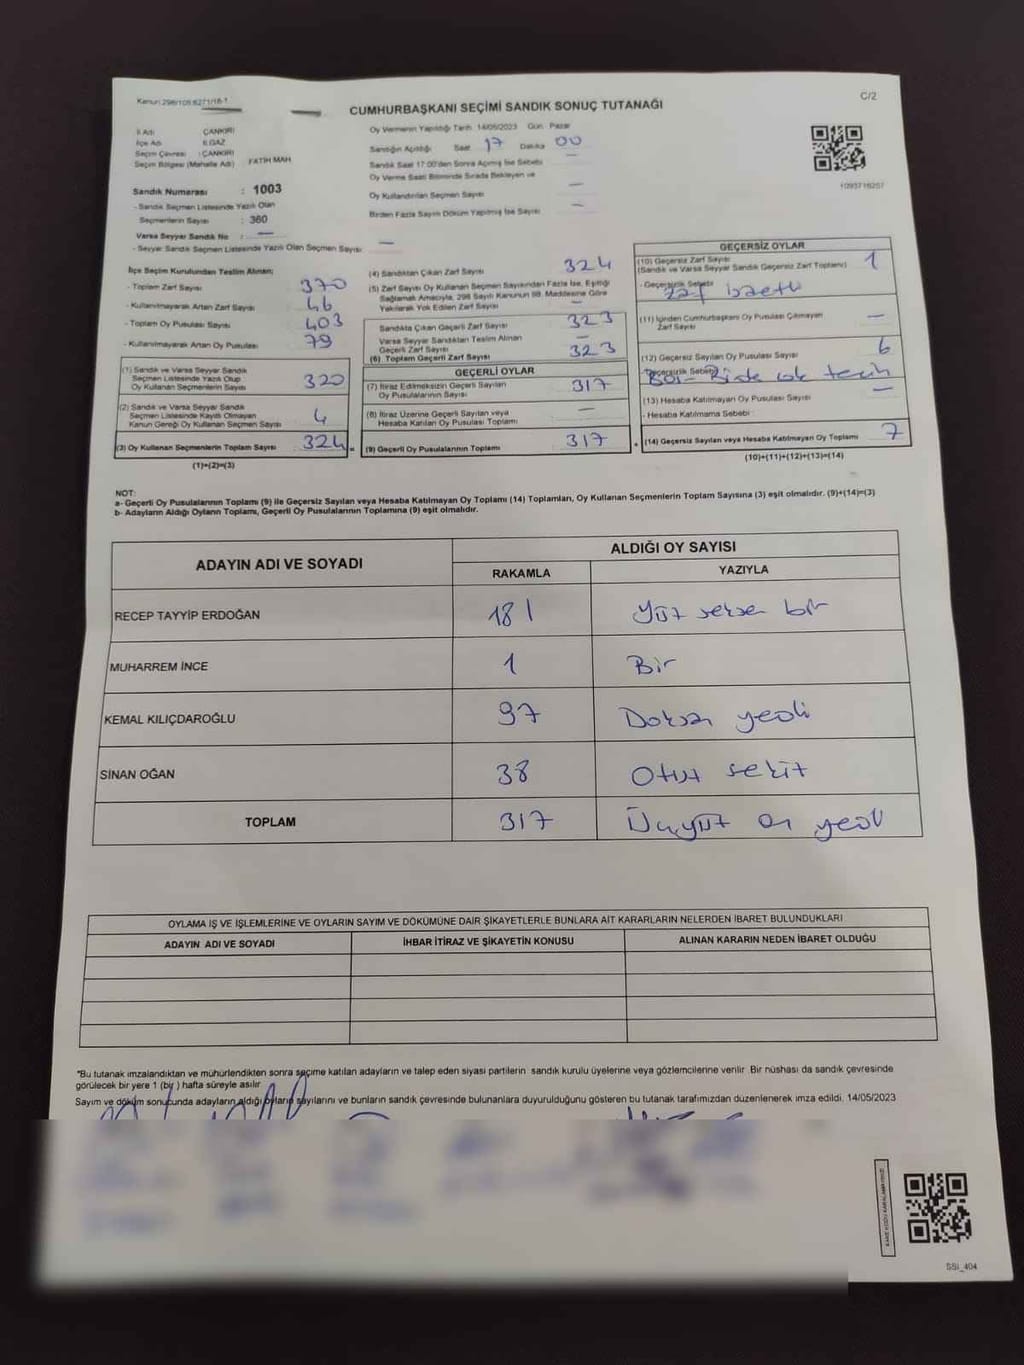 Kanun:298/105,6271/16-1
CUMHURBAŞKANI SEÇİMİ SANDIK SONUÇ TUTANAĞI
C/2
İl Adı : ÇANKIRI
İlçe Adı : ILGAZ
Seçim Çevresi : ÇANKIRI
Seçim Bölgesi (Mahalle Adı) : FATİH MAH
Sandık Numarası : 1003
- Sandık Seçmen Listesinde Yazılı Olan
Seçmenlerin Sayısı : 360
Varsa Seyyar Sandık No : —
- Seyyar Sandık Seçmen Listesinde Yazılı Olan Seçmen Sayısı —
Oy Vermenin Yapıldığı Tarih 14/05/2023 Gün Pazar
Sandığın Açıldığı Saat 17 Dakika 00
Sandık Saat 17:00'den Sonra Açılmış İse Sebebi —
Oy Verme Saati Bitiminde Sırada Bekleyen ve
Oy Kullandırılan Seçmen Sayısı —
Birden Fazla Sayım Döküm Yapılmış İse Sayısı —
1093716257
İlçe Seçim Kurulundan Teslim Alınan;
- Toplam Zarf Sayısı 370
- Kullanılmayarak Artan Zarf Sayısı 46
- Toplam Oy Pusulası Sayısı 403
- Kullanılmayarak Artan Oy Pusulası 79
(1) Sandık ve Varsa Seyyar Sandık
Seçmen Listesinde Yazılı Olup
Oy Kullanan Seçmenlerin Sayısı 320
(2) Sandık ve Varsa Seyyar Sandık
Seçmen Listesinde Kayıtlı Olmayan
Kanun Gereği Oy Kullanan Seçmen Sayısı 4
(3) Oy Kullanan Seçmenlerin Toplam Sayısı 324 =
(1)+(2)=(3)
(4) Sandıktan Çıkan Zarf Sayısı 324
(5) Zarf Sayısı Oy Kullanan Seçmen Sayısından Fazla İse, Eşitliği
Sağlamak Amacıyla, 298 Sayılı Kanunun 98. Maddesine Göre
Yakılarak Yok Edilen Zarf Sayısı —
Sandıkta Çıkan Geçerli Zarf Sayısı 323
Varsa Seyyar Sandıktan Teslim Alınan
Geçerli Zarf Sayısı —
(6) Toplam Geçerli Zarf Sayısı 323
GEÇERLİ OYLAR
(7) İtiraz Edilmeksizin Geçerli Sayılan
Oy Pusulalarının Sayısı 317
(8) İtiraz Üzerine Geçerli Sayılan veya
Hesaba Katılan Oy Pusulası Toplamı —
(9) Geçerli Oy Pusulalarının Toplamı 317 +
GEÇERSİZ OYLAR
(10) Geçersiz Zarf Sayısı
(Sandık ve Varsa Seyyar Sandık Geçersiz Zarf Toplamı) 1
- Geçersizlik Sebebi
(11) İçinden Cumhurbaşkanı Oy Pusulası Çıkmayan
Zarf Sayısı —
(12) Geçersiz Sayılan Oy Pusulası Sayısı 6
- Geçersizlik Sebebi
(13) Hesaba Katılmayan Oy Pusulası Sayısı —
- Hesaba Katılmama Sebebi
(14) Geçersiz Sayılan veya Hesaba Katılmayan Oy Toplamı 7
(10)+(11)+(12)+(13)=(14)
NOT:
a- Geçerli Oy Pusulalarının Toplamı (9) ile Geçersiz Sayılan veya Hesaba Katılmayan Oy Toplamı (14) Toplamları, Oy Kullanan Seçmenlerin Toplam Sayısına (3) eşit olmalıdır. (9)+(14)=(3)
b- Adayların Aldığı Oyların Toplamı, Geçerli Oy Pusulalarının Toplamına (9) eşit olmalıdır.
ADAYIN ADI VE SOYADI
ALDIĞI OY SAYISI
RAKAMLA YAZIYLA
RECEP TAYYİP ERDOĞAN 181 Yüz seksen bir
MUHARREM İNCE 1 Bir
KEMAL KILIÇDAROĞLU 97 Doksan yedi
SİNAN OĞAN 38 Otuz sekiz
TOPLAM 317 Üçyüz on yedi
OYLAMA İŞ VE İŞLEMLERİNE VE OYLARIN SAYIM VE DÖKÜMÜNE DAİR ŞİKAYETLERLE BUNLARA AİT KARARLARIN NELERDEN İBARET BULUNDUKLARI
ADAYIN ADI VE SOYADI İHBAR İTİRAZ VE ŞİKAYETİN KONUSU ALINAN KARARIN NEDEN İBARET OLDUĞU
*Bu tutanak imzalandıktan ve mühürlendikten sonra seçime katılan adayların ve talep eden siyasi partilerin sandık kurulu üyelerine veya gözlemcilerine verilir. Bir nüshası da sandık çevresinde
görülecek bir yere 1 (bir) hafta süreyle asılır
Sayım ve döküm sonucunda adayların aldığı oyların sayılarını ve bunların sandık çevresinde bulunanlara duyurulduğunu gösteren bu tutanak tarafımızdan düzenlenerek imza edildi. 14/05/2023
SSI_404